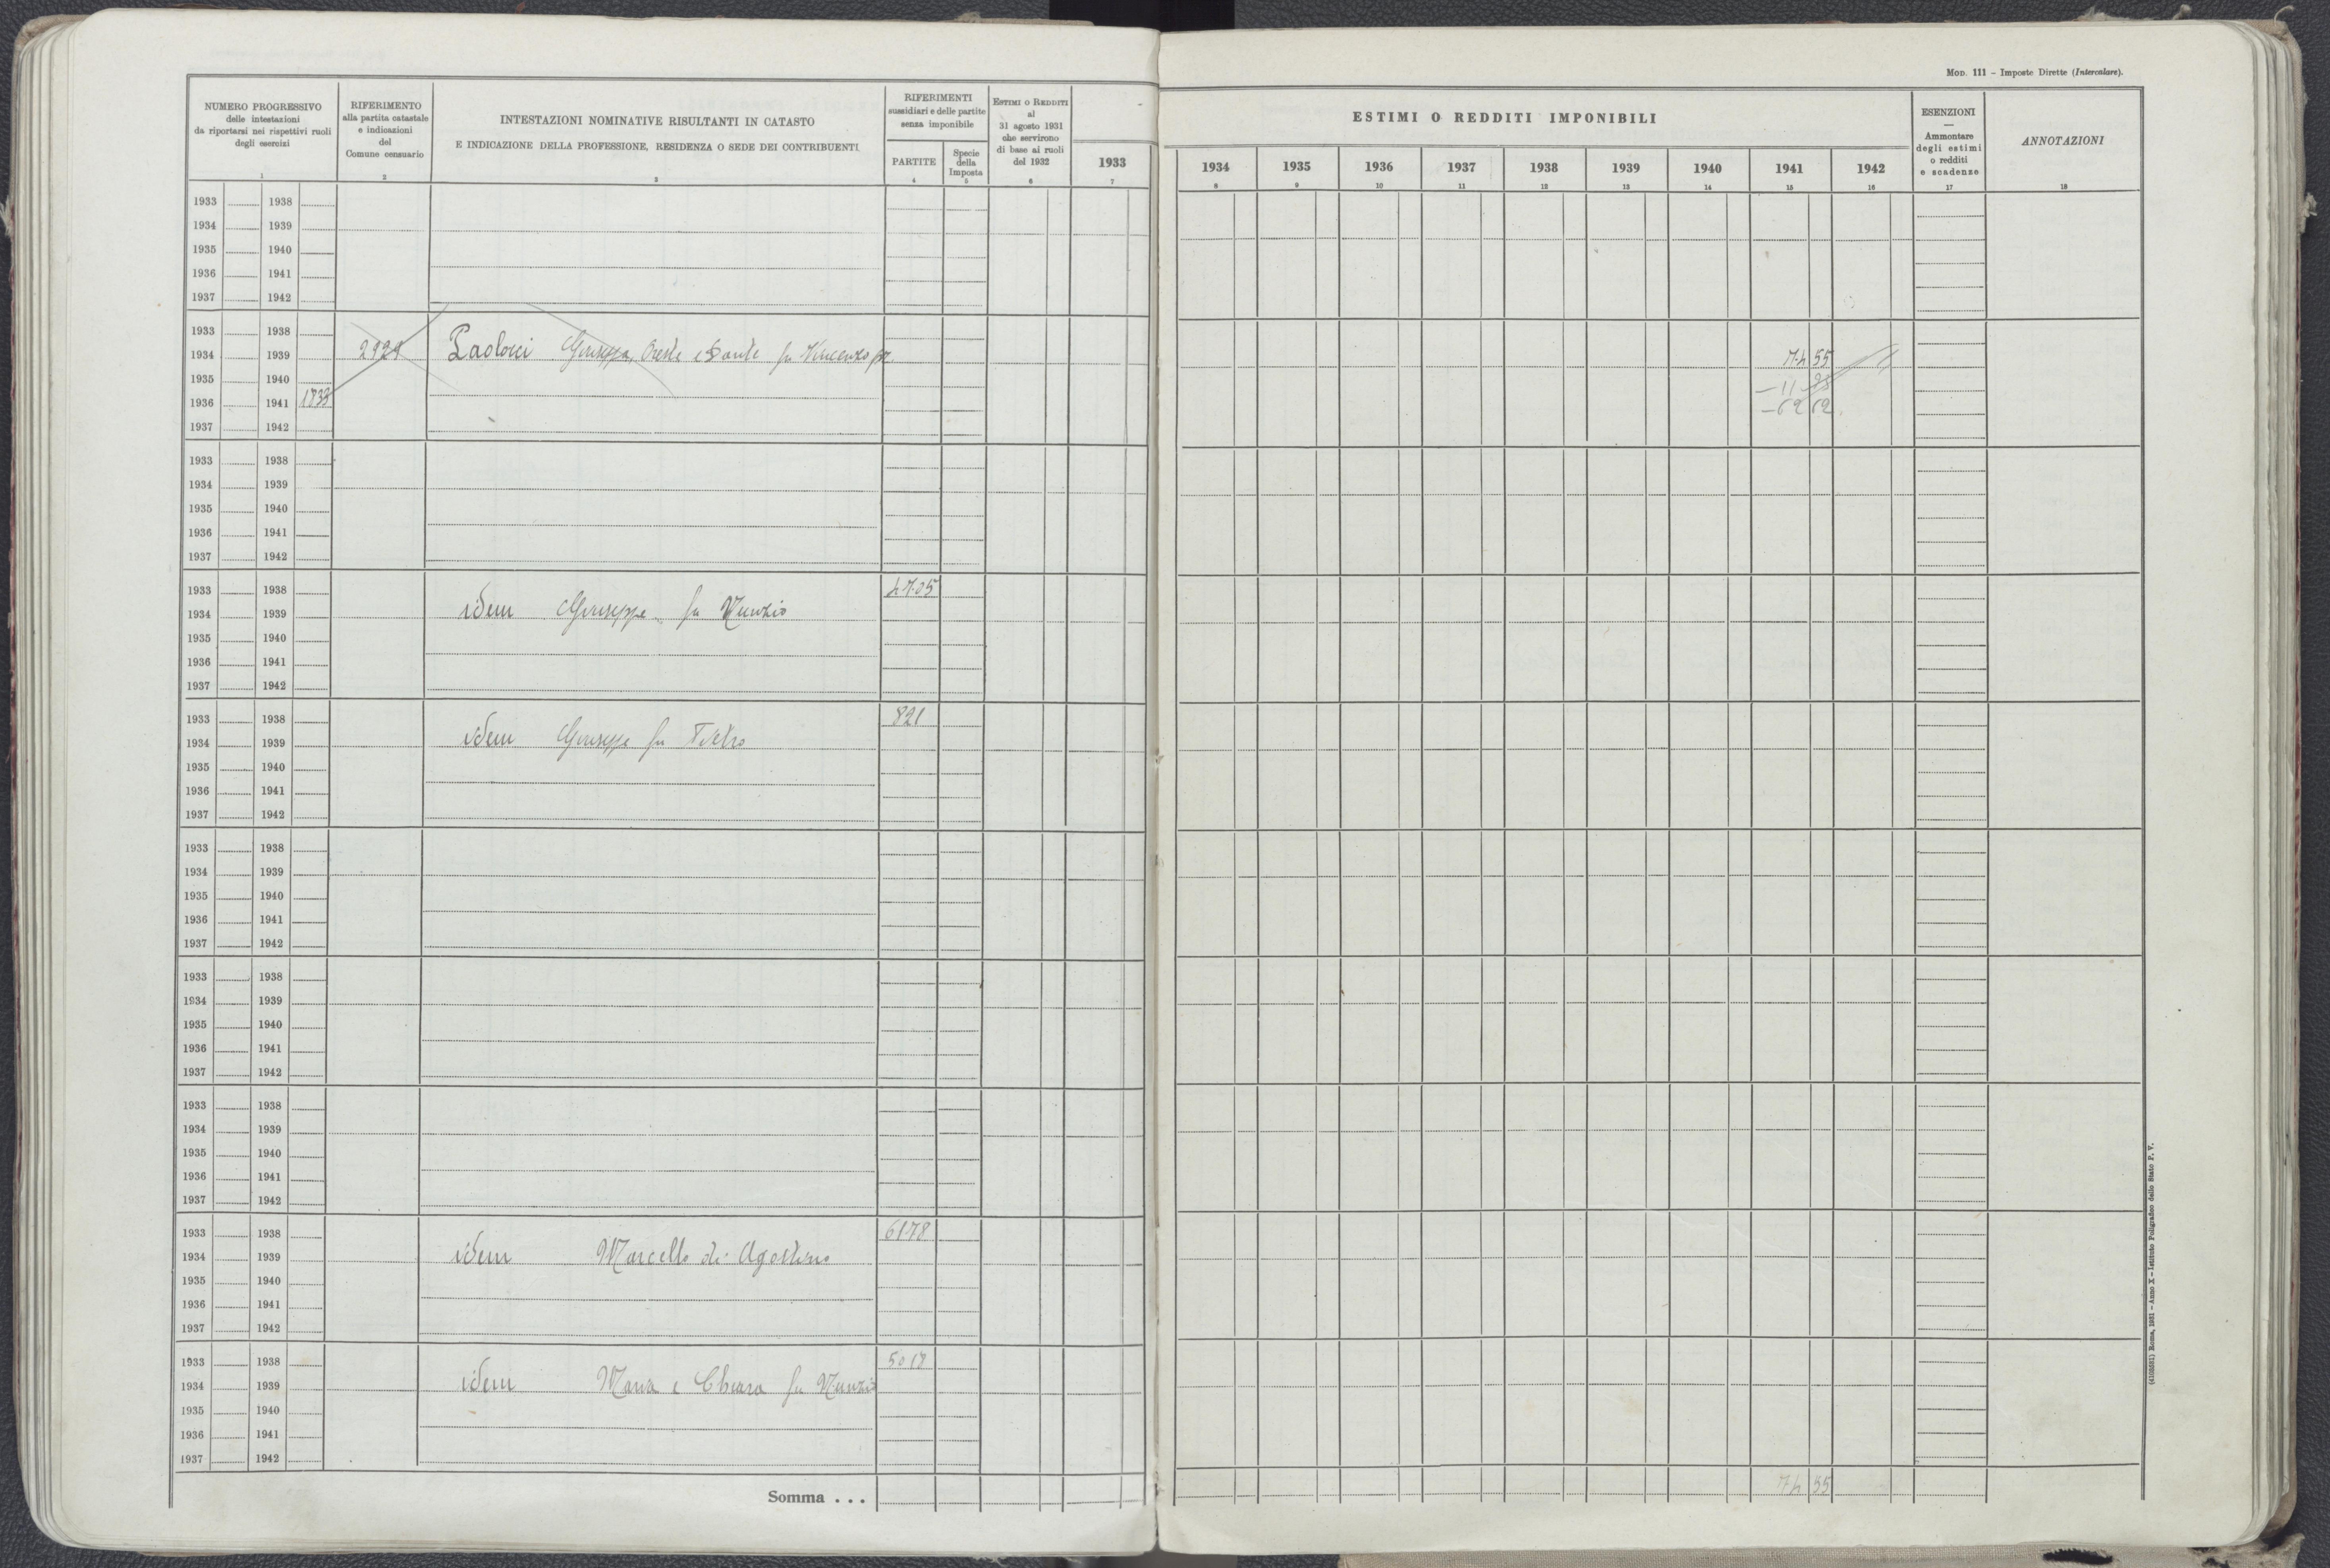 MOD. 111 – Imposte Dirette (Intercalare).
NUMERO PROGRESSIVO
delle intestazioni
da riportarsi nei rispettivi ruoli
degli esercizi
1
RIFERIMENTO
alla partita catastale
e indicazioni
del
Comune censuario
2
INTESTAZIONI NOMINATIVE RISULTANTI IN CATASTO
E INDICAZIONE DELLA PROFESSIONE, RESIDENZA O SEDE DEI CONTRIBUENTI
3
RIFERIMENTI
sussidiari e delle partite
senza imponibile
PARTITE
4
Specie
della
Imposta
5
ESTIMI O REDDITI
al
31 agosto 1931
che servirono
di base ai ruoli
del 1932
6
ESTIMI O REDDITI IMPONIBILI
1933 1934 1935 1936 1937 1938 1939 1940 1941 1942
7 8 9 10 11 12 13 14 15 16
ESENZIONI
—
Ammontare
degli estimi
o redditi
e scadenze
17
ANNOTAZIONI
18
1933 1938
1934 1939
1935 1940
1936 1941
1937 1942
1933 1938
1934 1939 2929 Paolucci Giuseppa, Oreste e Sante fu Vincenzo pr. 74 55
1935 1940 – 11 93
1936 1941 1833 – 62 62
1937 1942
1933 1938
1934 1939
1935 1940
1936 1941
1937 1942
1933 1938 4705
1934 1939 idem Giuseppe fu Nunzio
1935 1940
1936 1941
1937 1942
1933 1938 821
1934 1939 idem Giuseppe fu Pietro
1935 1940
1936 1941
1937 1942
1933 1938
1934 1939
1935 1940
1936 1941
1937 1942
1933 1938
1934 1939
1935 1940
1936 1941
1937 1942
1933 1938
1934 1939
1935 1940
1936 1941
1937 1942
1933 1938 6178
1934 1939 idem Marcello di Agostino
1935 1940
1936 1941
1937 1942
1933 1938 5017
1934 1939 idem Maria e Chiara fu Nunzio
1935 1940
1936 1941
1937 1942
Somma . . . 74 55
(4103581) Roma, 1931 – Anno X – Istituto Poligrafico dello Stato P. V.